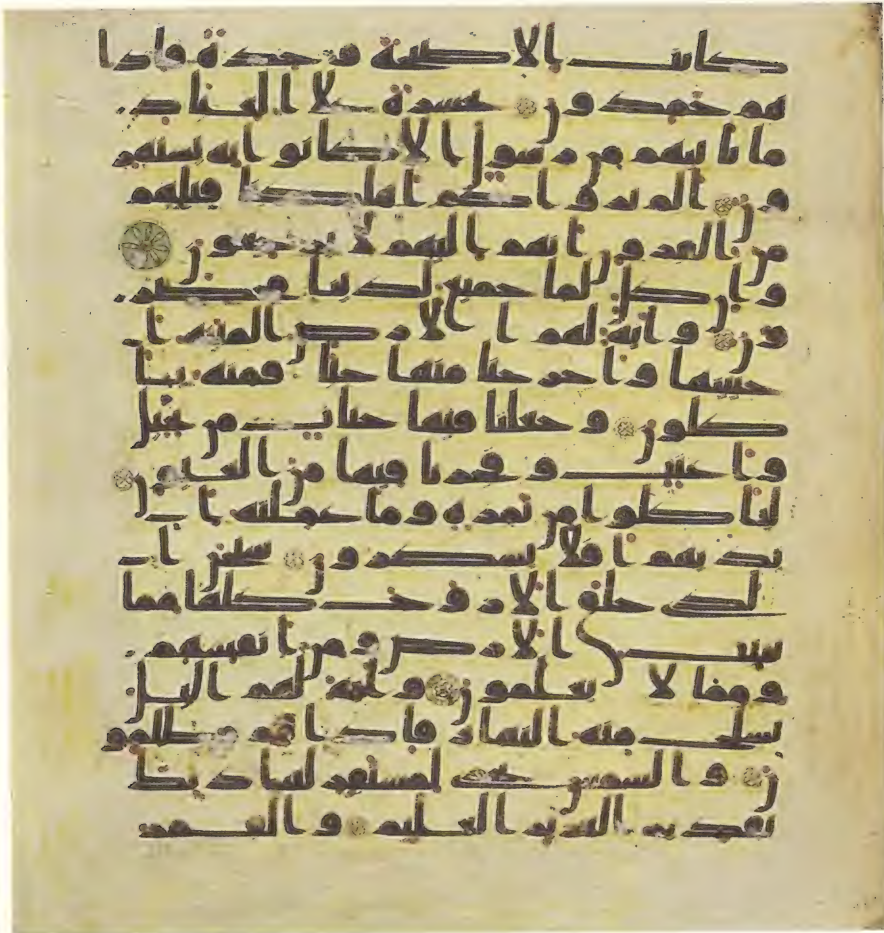 كانت الا صيحة وحدة فاذا
هم خمدون يحسرة علا العباد
ما ياتيهم من رسول الا كانوا به يستهز
ون الم يروا كم اهلكنا قبلهم
من القرون انهم اليهم لا يرجعون
وان كل لما جميع لدينا محضر
ون واية لهم الارض الميتة ا
حيينها واخرجنا منها حبا فمنه يا
كلون وجعلنا فيها جنات من نخيل
واعنب وفجرنا فيها من العيون
لياكلوا من ثمره وما عملته ا
يديهم افلا يشكرون سبحن ا
لذي خلق الازوج كلها مما
تنبت الارض ومن انفسهم
ومما لا يعلمون واية لهم اليل
نسلخ منه النهار فاذا هم مظلمو
ن والشمس تجري لمستقر لها ذلك
تقدير العزيز العليم والقمر